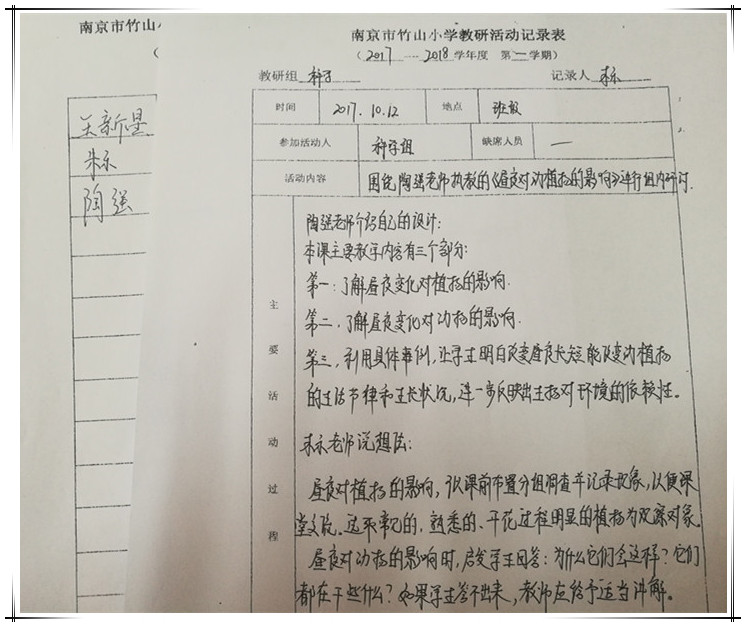 南京市竹山小
（
吴新星
朱乐
陶强
南京市竹山小学教研活动记录表
（2017 — 2018 学年度 第 一 学期）
教研组 科学 记录人 朱乐
时间 2017.10.12 地点
参加活动人 科学组 缺席人员 —
活动内容 围绕陶强老师执教的《昼夜对动植物的影响》进行组内研讨.
主要活动过程
陶强老师介绍自己的设计：
本课主要教学内容有三个部分：
第一：了解昼夜变化对植物的影响.
第二，了解昼夜变化对动物的影响.
第三，利用具体事例，让学生明白改变昼夜长短能改变动植物
的生活节律和生长状况，进一步反映出生物对环境的依赖性。
朱乐老师说想法：
昼夜对植物的影响，以课前布置分组调查并记录现象，以便课
堂交流。选取常见的、熟悉的、开花过程明显的植物为观察对象。
昼夜对动物的影响时，启发学生回答：为什么它们会这样？它们
都在干些什么？如果学生答不出来，教师应给予适当讲解。